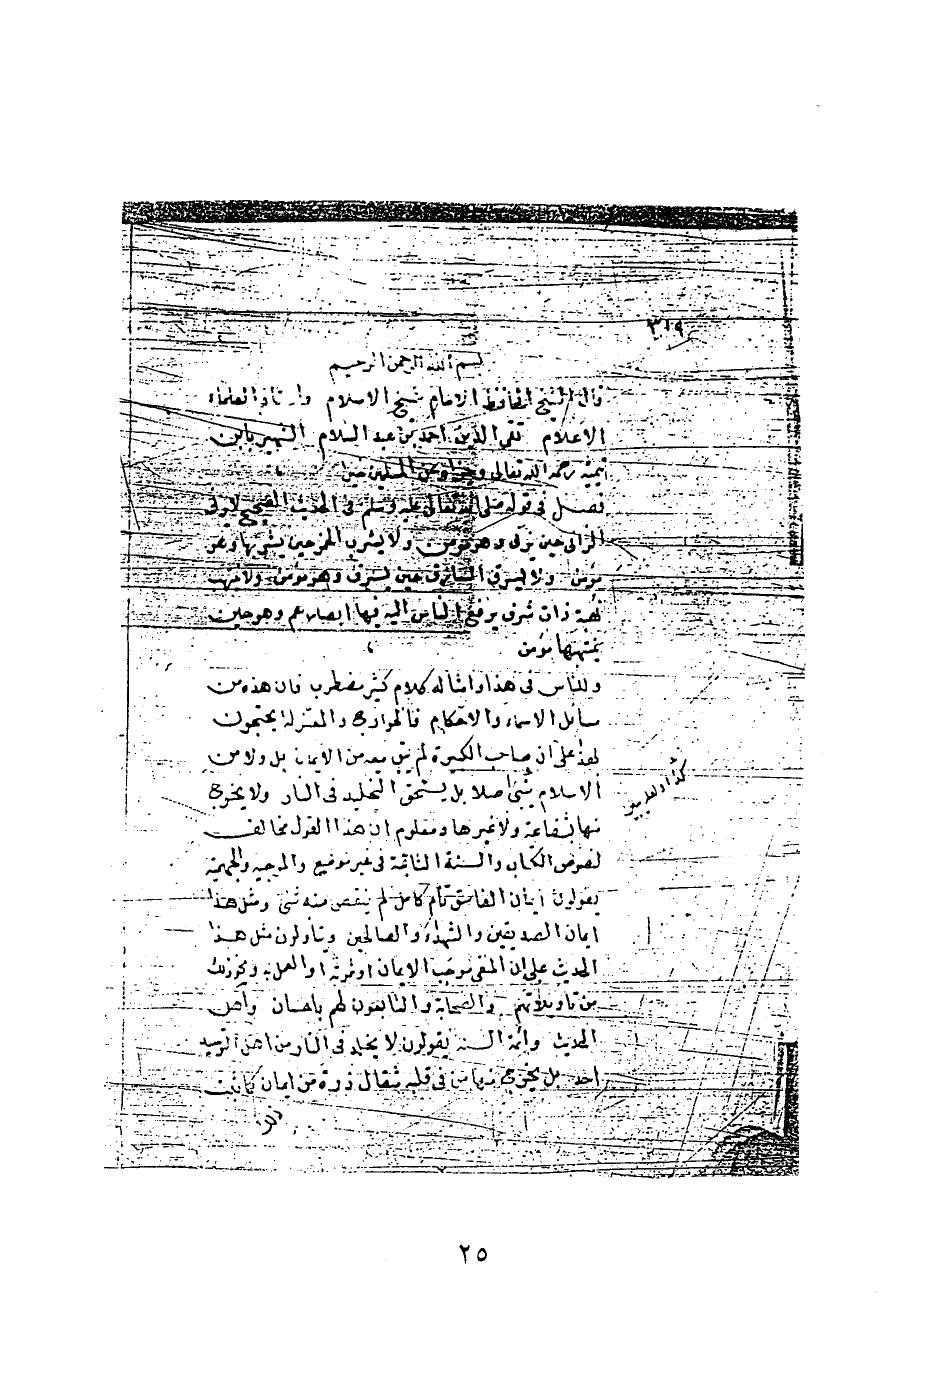 ٣١٩
بسم الله الرحمن الرحيم
قال الشيخ الحافظ الامام شيخ الاسلام واستاذ العلماء
الاعلام تقي الدين احمد بن عبد السلام الشهير بابن
تيمية رحمه الله تعالى وعن المسلمين
فصل في قوله صلى الله تعالى عليه وسلم في الحديث الصحيح لا يزني
الزاني حين يزني وهو مومن ولا يشرب الخمر حين يشربها وهو
مؤمن ولا يسرق السارق حين يسرق وهو مومن ولا ينهب
نهبة ذات شرف يرفع الناس اليه فيها ابصارهم وهو حين
ينتهبها مؤمن
وللناس في هذا وامثاله كلام كثير مضطرب فان هذه من
مسائل الاسماء والاحكام فالخوارج والمعتزلة يحتجون
بهذا على ان صاحب الكبيرة لم يبق معه من الايمان بل ولا من
الاسلام شئ اصلا بل يستحق التخليد في النار ولا يخرج
منها بشفاعة ولا غيرها ومعلوم ان هذا القول مخالف
لنصوص الكتاب والسنة الثابتة في غير موضع والمرجية والجهمية
يقولون ايمان الفاسق تام كامل لم ينقص منه شئ ومثل هذا
ايمان الصديقين والشهداء والصالحين ويتاولون مثل هذا
الحديث على ان المنفي موجب الايمان او ثمرته او العمل به ونحو ذلك
من تاويلاتهم والصحابة والتابعون لهم باحسان واهل
الحديث وأئمة السنة يقولون لا يخلد في النار من اهل التوحيد
احد بل يخرج منها من في قلبه مثقال ذرة من ايمان كما ثبت
٢٥